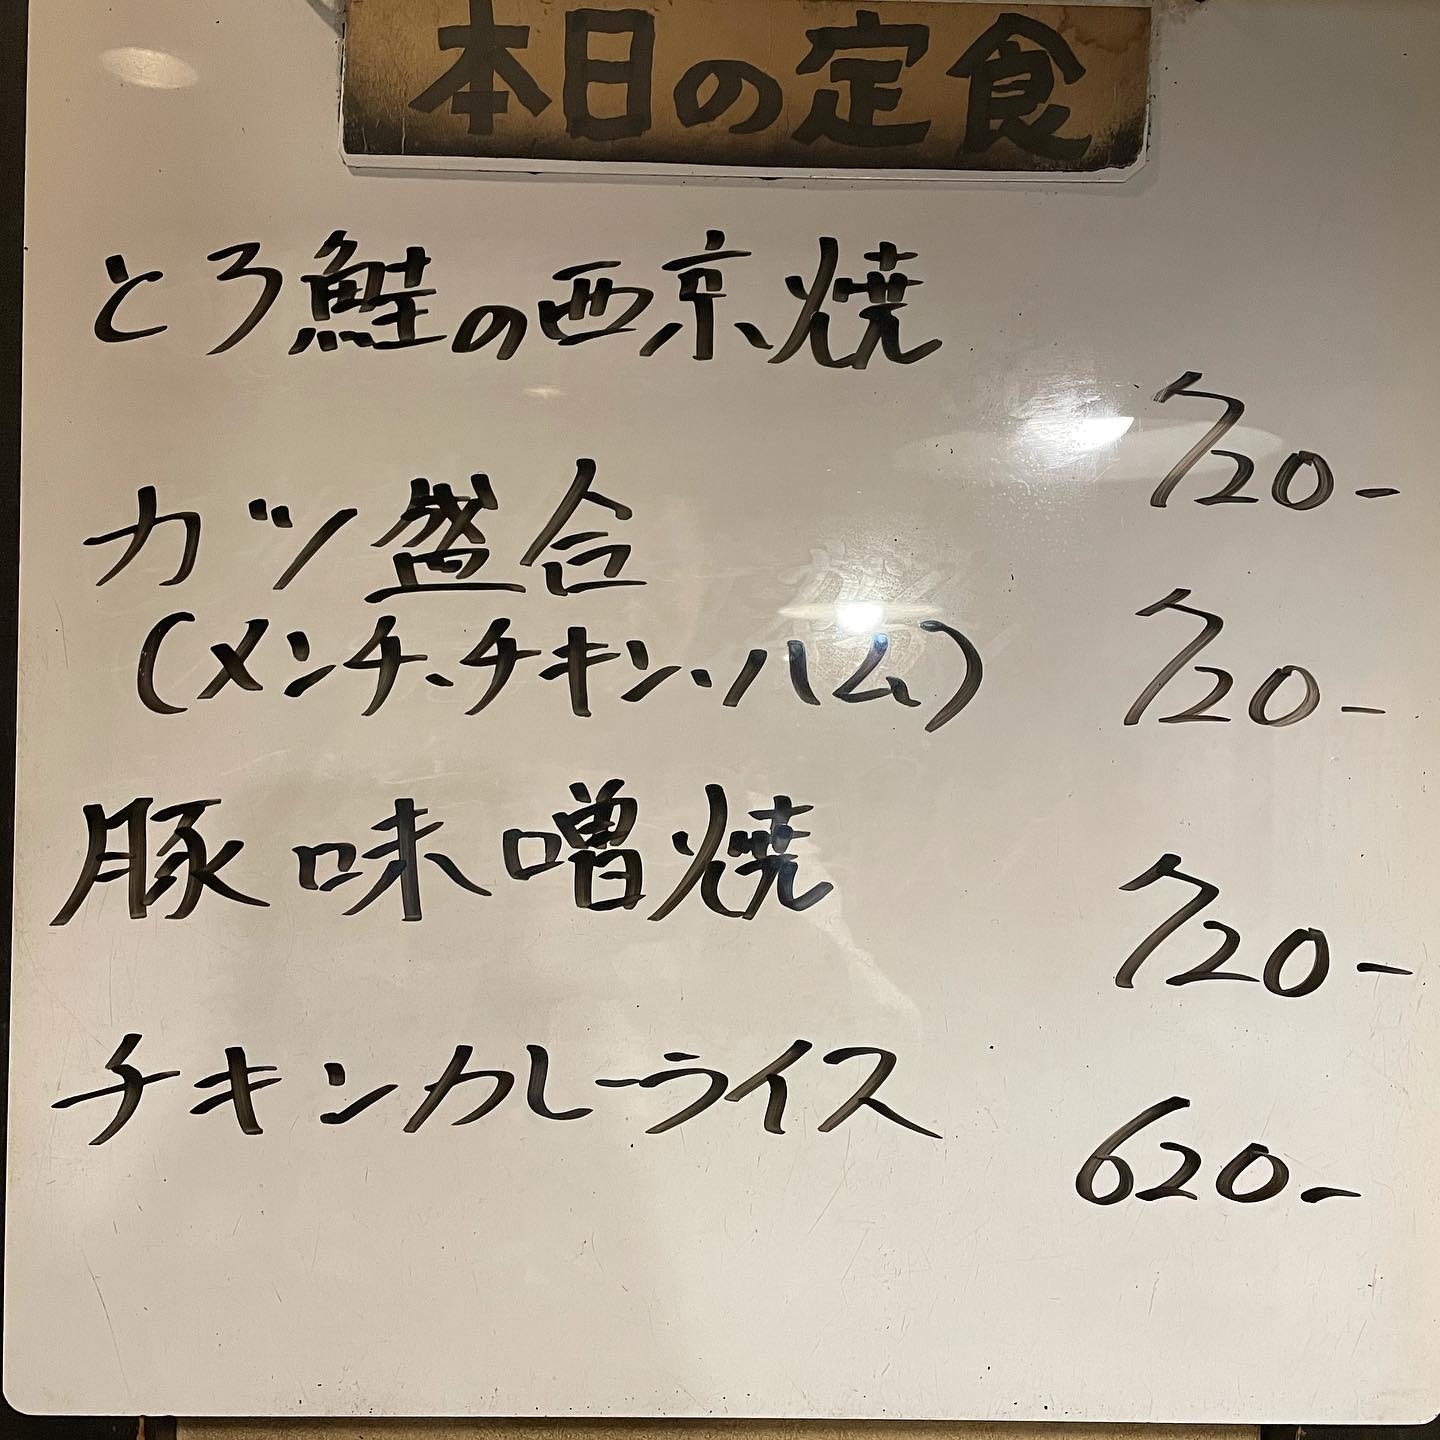 本日の定食
とろ鮭の西京焼
720-
カツ盛合
(メンチ、チキン、ハム)
720-
豚味噌焼
720-
チキンカレーライス
620-